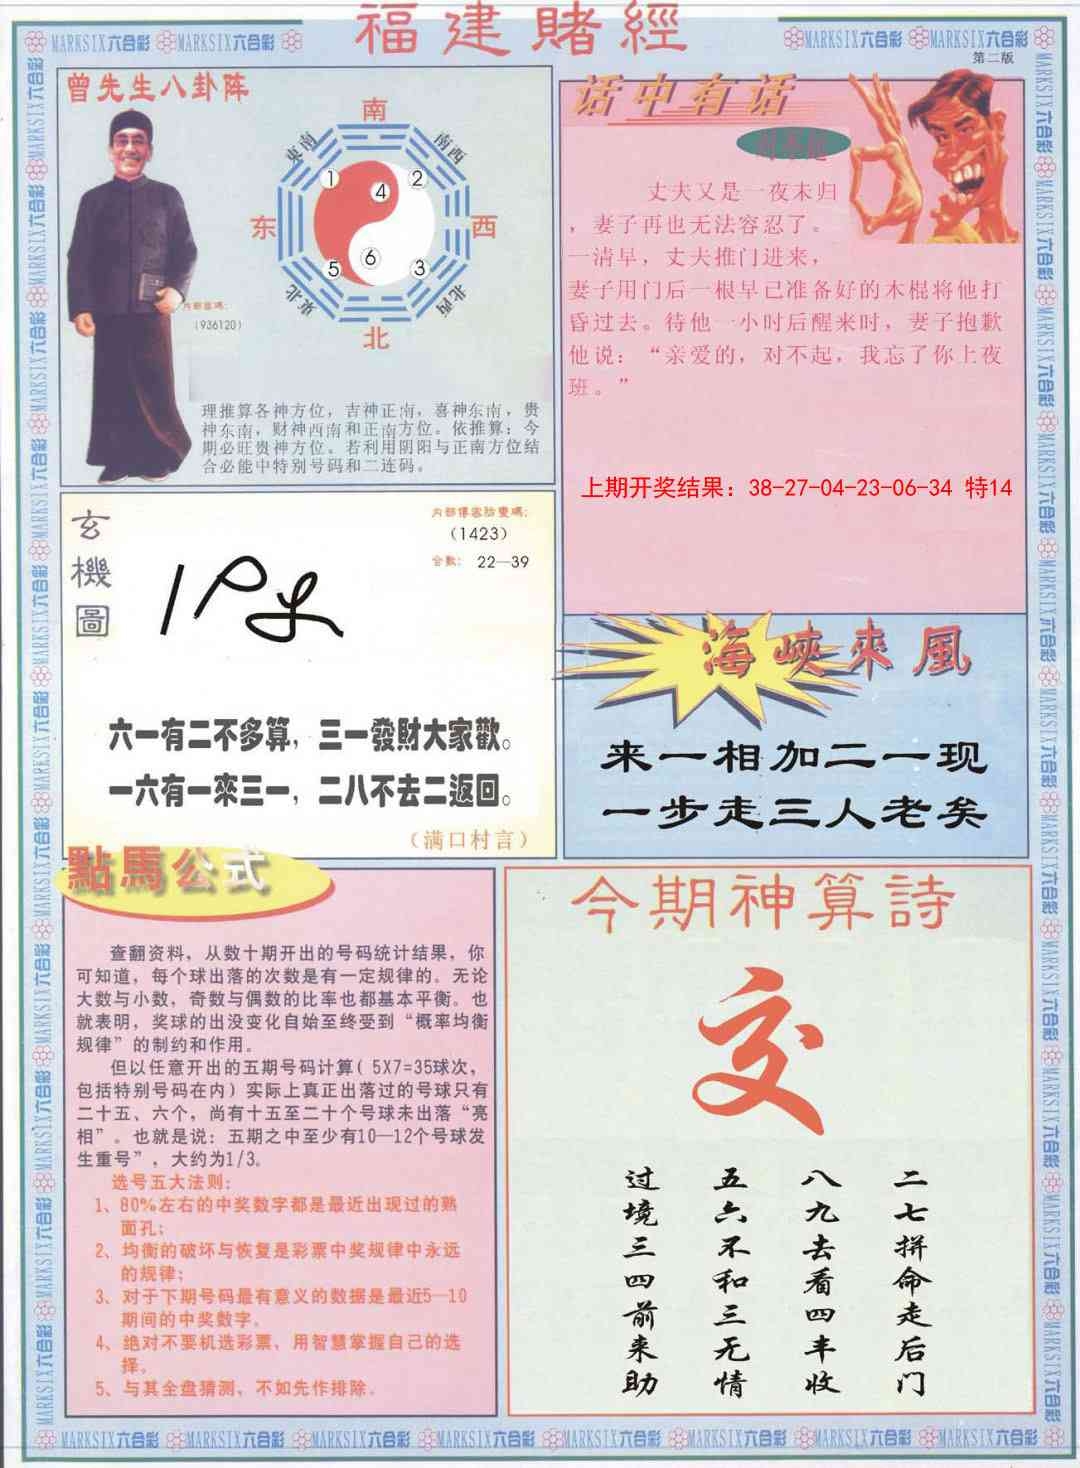 福建賭經
MARKSIX六合彩 MARKSIX六合彩
MARKSIX六合彩 MARKSIX六合彩
第二版
曾先生八卦阵
南
東南
南西
1
4
2
东
西
5
6
3
東北
北西
北
内部密碼：
（936120）
理推算各神方位，吉神正南，喜神东南，贵
神东南，财神西南和正南方位。依推算：今
期必旺贵神方位。若利用阴阳与正南方位结
合必能中特别号码和二连码。
话中有话
丈夫又是一夜未归
，妻子再也无法容忍了。
一清早，丈夫推门进来，
妻子用门后一根早已准备好的木棍将他打
昏过去。待他一小时后醒来时，妻子抱歉
他说：“亲爱的，对不起，我忘了你上夜
班。”
上期开奖结果：38-27-04-23-06-34 特14
玄機圖
（1423）
合數： 22—39
六一有二不多算，三一發財大家歡。
一六有一來三一，二八不去二返回。
（满口村言）
海峽來風
来一相加二一现
一步走三人老矣
點馬公式
查翻资料，从数十期开出的号码统计结果，你
可知道，每个球出落的次数是有一定规律的。无论
大数与小数，奇数与偶数的比率也都基本平衡。也
就表明，奖球的出没变化自始至终受到“概率均衡
规律”的制约和作用。
但以任意开出的五期号码计算( 5X7=35球次，
包括特别号码在内）实际上真正出落过的号球只有
二十五、六个，尚有十五至二十个号球未出落“亮
相”。也就是说：五期之中至少有10—12个号球发
生重号”，大约为1/3。
选号五大法则：
1、80%左右的中奖数字都是最近出现过的熟
面孔；
2、均衡的破坏与恢复是彩票中奖规律中永远
的规律；
3、对于下期号码最有意义的数据是最近5—10
期间的中奖数字。
4、绝对不要机选彩票，用智慧掌握自己的选
择。
5、与其全盘猜测，不如先作排除。
今期神算詩
交
二七拼命走后门
八九去看四丰收
五六不和三无情
过境三四前来助
MARKSIX六合彩 MARKSIX六合彩 MARKSIX六合彩 MARKSIX六合彩 MARKSIX六合彩 MARKSIX六合彩 MARKSIX六合彩 MARKSIX六合彩